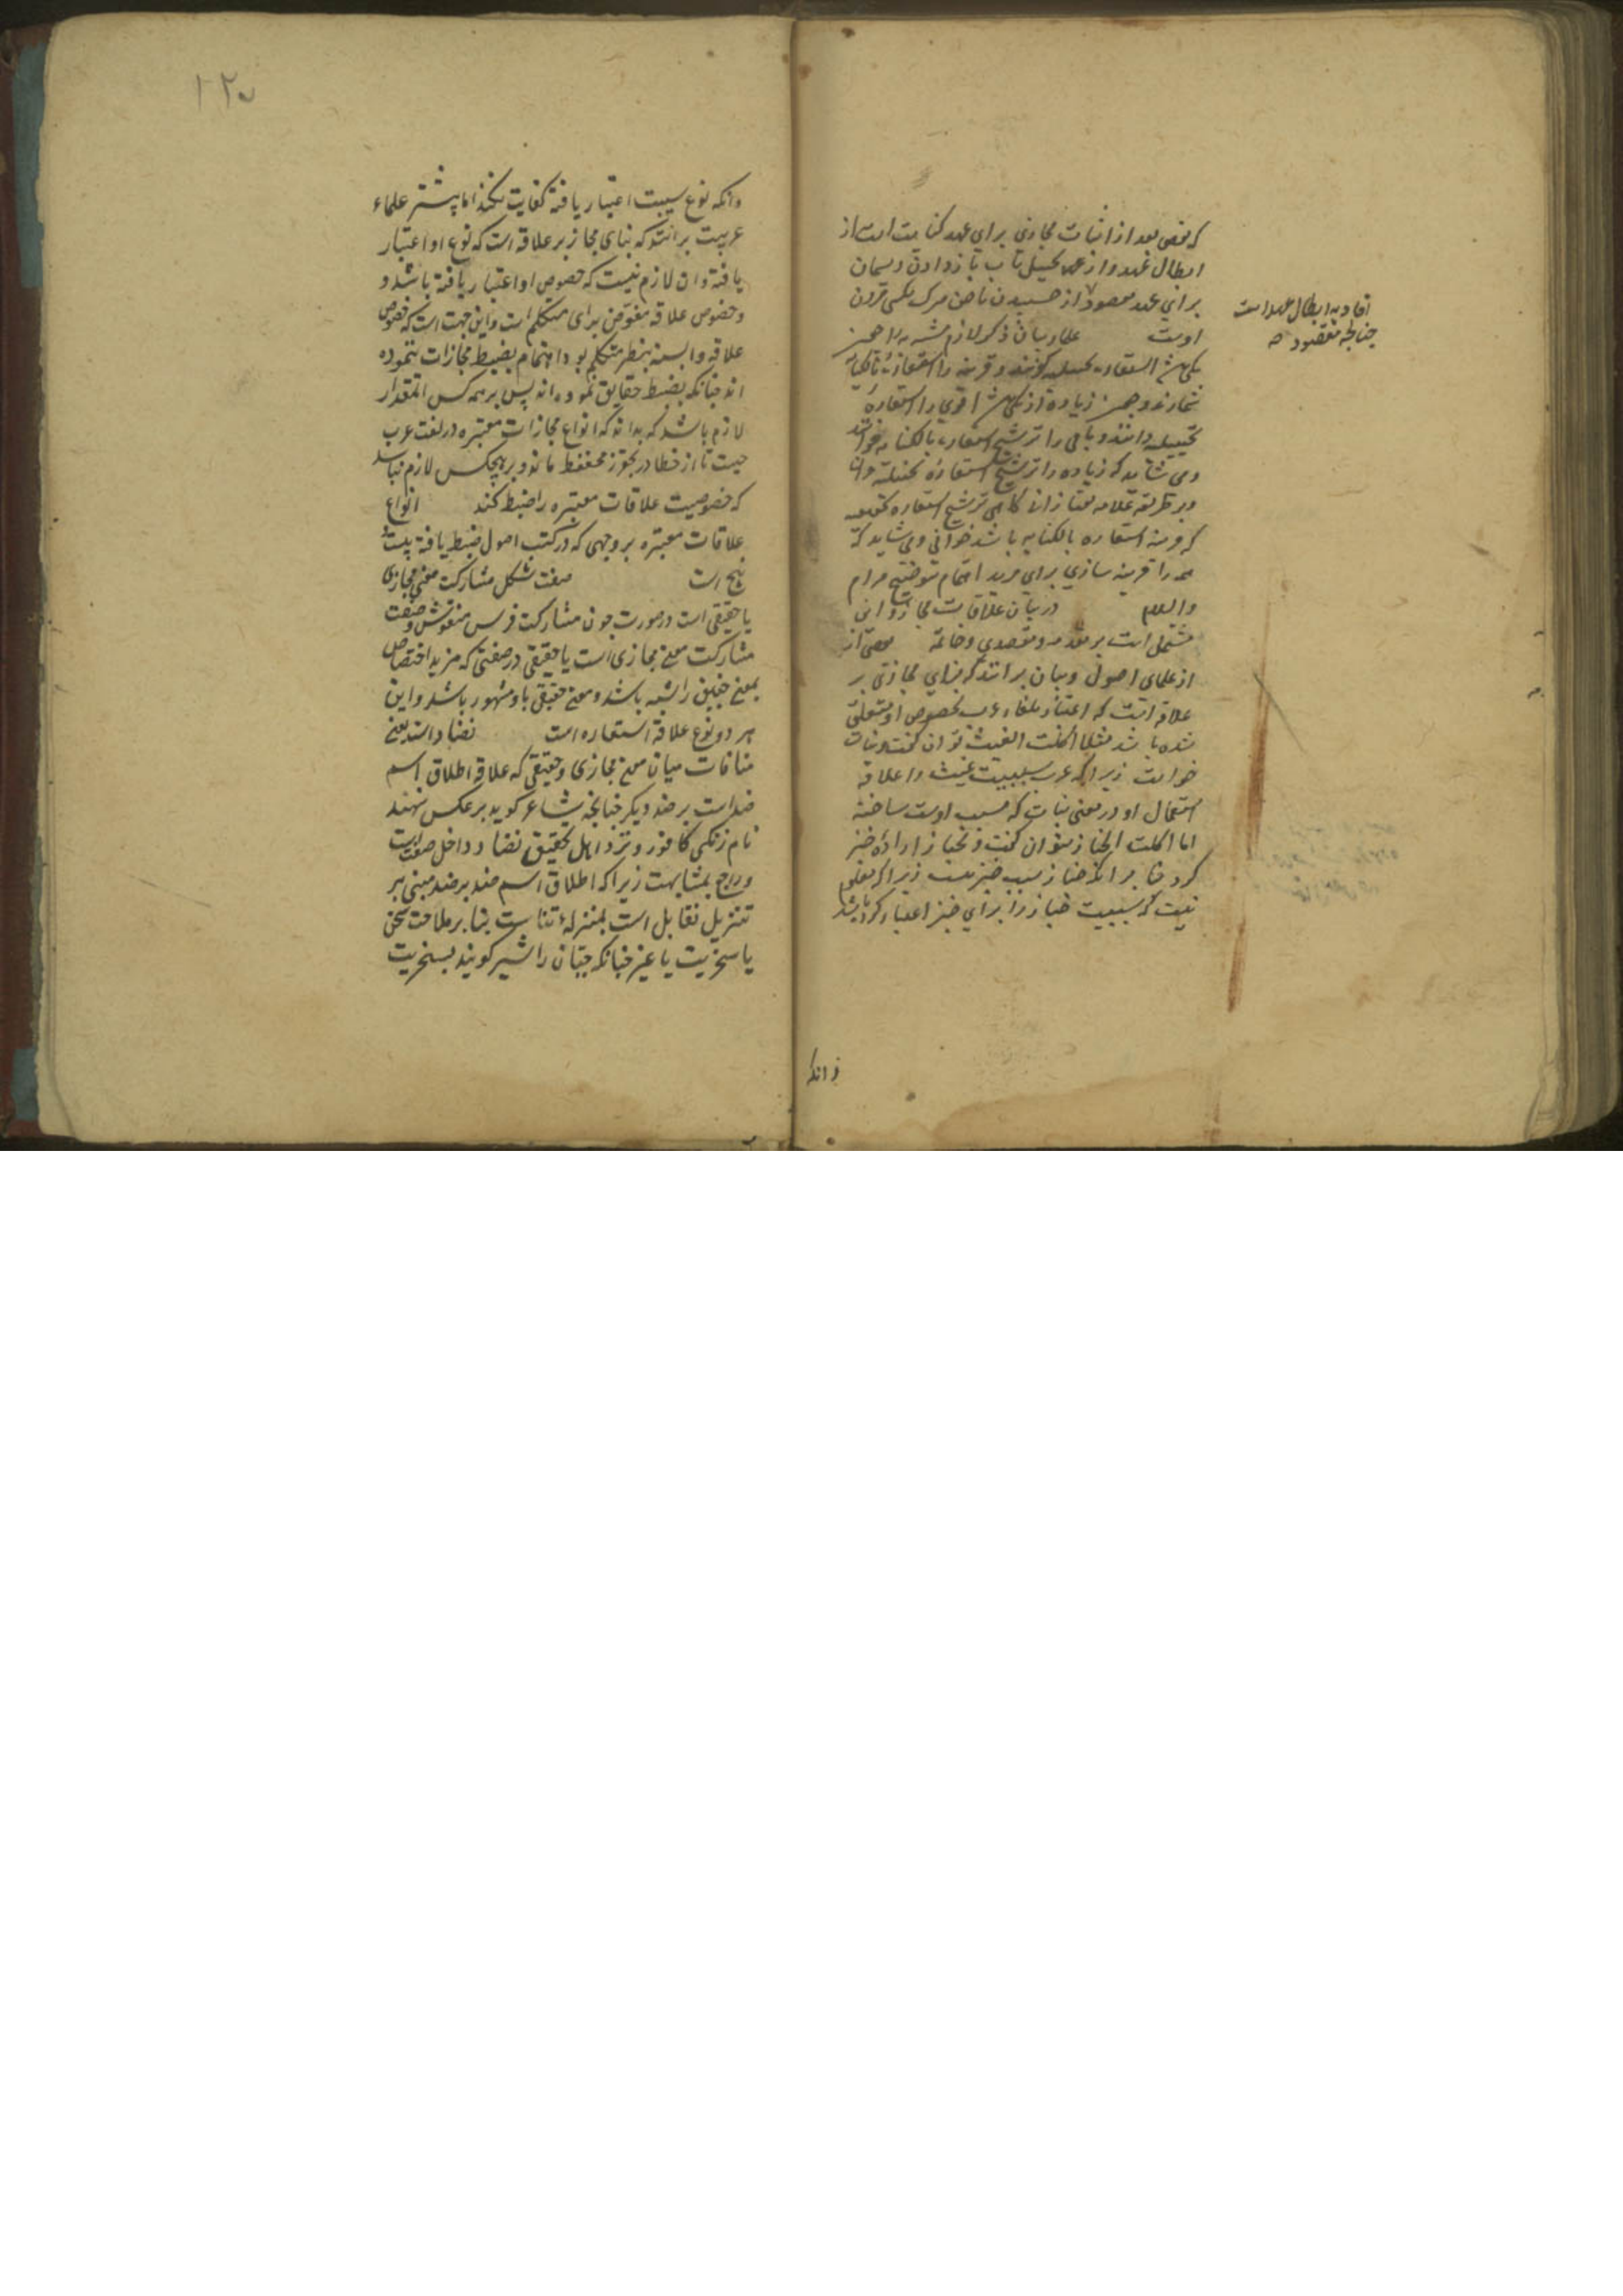 که نقض بعد از اثبات مجازی برای عهد کنایت است از
ابطال عهد و از عهد تخییل تاب باز دادن ریسمان
برای عهد مقصود از چسبیدن ناخن مرگ بکسی قرون
اوست علماء بیان ذکر لازم مشبه به
افاده ابطال عهد است
چنانچه مقصود صح
شمارند و زیاده از یکی باشد اقوی را استعاره
تخییلیه دانند و باقی را ترشیح استعاره بالکنایه خوانند
و می شاید که زیاده را ترشیح استعاره تخییلیه
و بر طریقه علامه تفتازانی گاهی ترشیح استعاره
که قرینه استعاره بالکنایه باشد خوانی و می شاید که
همه را قرینه سازی برای مزید اهتمام توضیح مرام
والسلام در بیان علاقات مجاز و آن
مشتمل است بر مقدمه و مقصدی و خاتمه بعضی از
از علمای اصول و بیان برانند که بنای مجازی بر
علاقه است که اعتبار بلغاء عرب بخصوص او متعلق
شده باشد مثلا اکلت الغیث توان گفت و نبات
خواست زیرا که عرب سببیت غیث را علاقه
استعمال او در معنی نبات که مسبب اوست ساخته
اما اکلت الخباز نتوان گفت و بخباز اراده خبز
کرد بنا بر انکه خباز سبب خبز نیست زیرا که معلوم
نیست که سببیت خباز را برای خبز اعتبار کرده باشد
وانکه
۱۲۵
وانکه نوع سببیت اعتبار یافته کفایت نکند اما بیشتر علماء
عربیت برانند که بنای مجاز بر علاقه است که نوع او اعتبار
یافته و ان لازم نیست که خصوص او اعتبار یافته باشد و
و خصوص علاقه مفوض برای متکلم است و ازین جهت است که خصوص
علاقه وابسته بنظر متکلم بود اهتمام بضبط مجازات ننموده
اند چنانکه بضبط حقایق نموده اند پس بر همه کس انمقدار
لازم باشد که بداند که انواع مجازات معتبره در لغت عرب
چیست تا از خطا در تجوز محفوظ ماند و بر هیچکس لازم نباشد
که خصوصیت علاقات معتبره را ضبط کند انواع
علاقات معتبره بر وجهی که در کتب اصول ضبط یافته بیست و
پنج است صفت شکل مشارکت معنی مجازی
با حقیقی است در صورت چون مشارکت فرس منقوش و صفت
مشارکت معنی مجازی است با حقیقی در صفتی که مزید اختصاص
بمعنی حقیقی داشته باشد و معنی حقیقی باو مشهور باشد و این
هر دو نوع علاقه استعاره است تضاد است یعنی
منافات میان معنی مجازی و حقیقی که علاقه اطلاق اسم
ضد است بر ضد دیگر چنانچه شاعر کوید بر عکس نهند
نام زنگی کافور و نزد اهل تحقیق تضاد داخل صفت است
و راجع بمشابهت زیرا که اطلاق اسم ضد بر ضد مبنی بر
تنزیل تقابل است بمنزله تناسب بنا بر ملاحت سخن
یا سخریت یا غیر چنانکه جبان را شیر کویند بسخریت